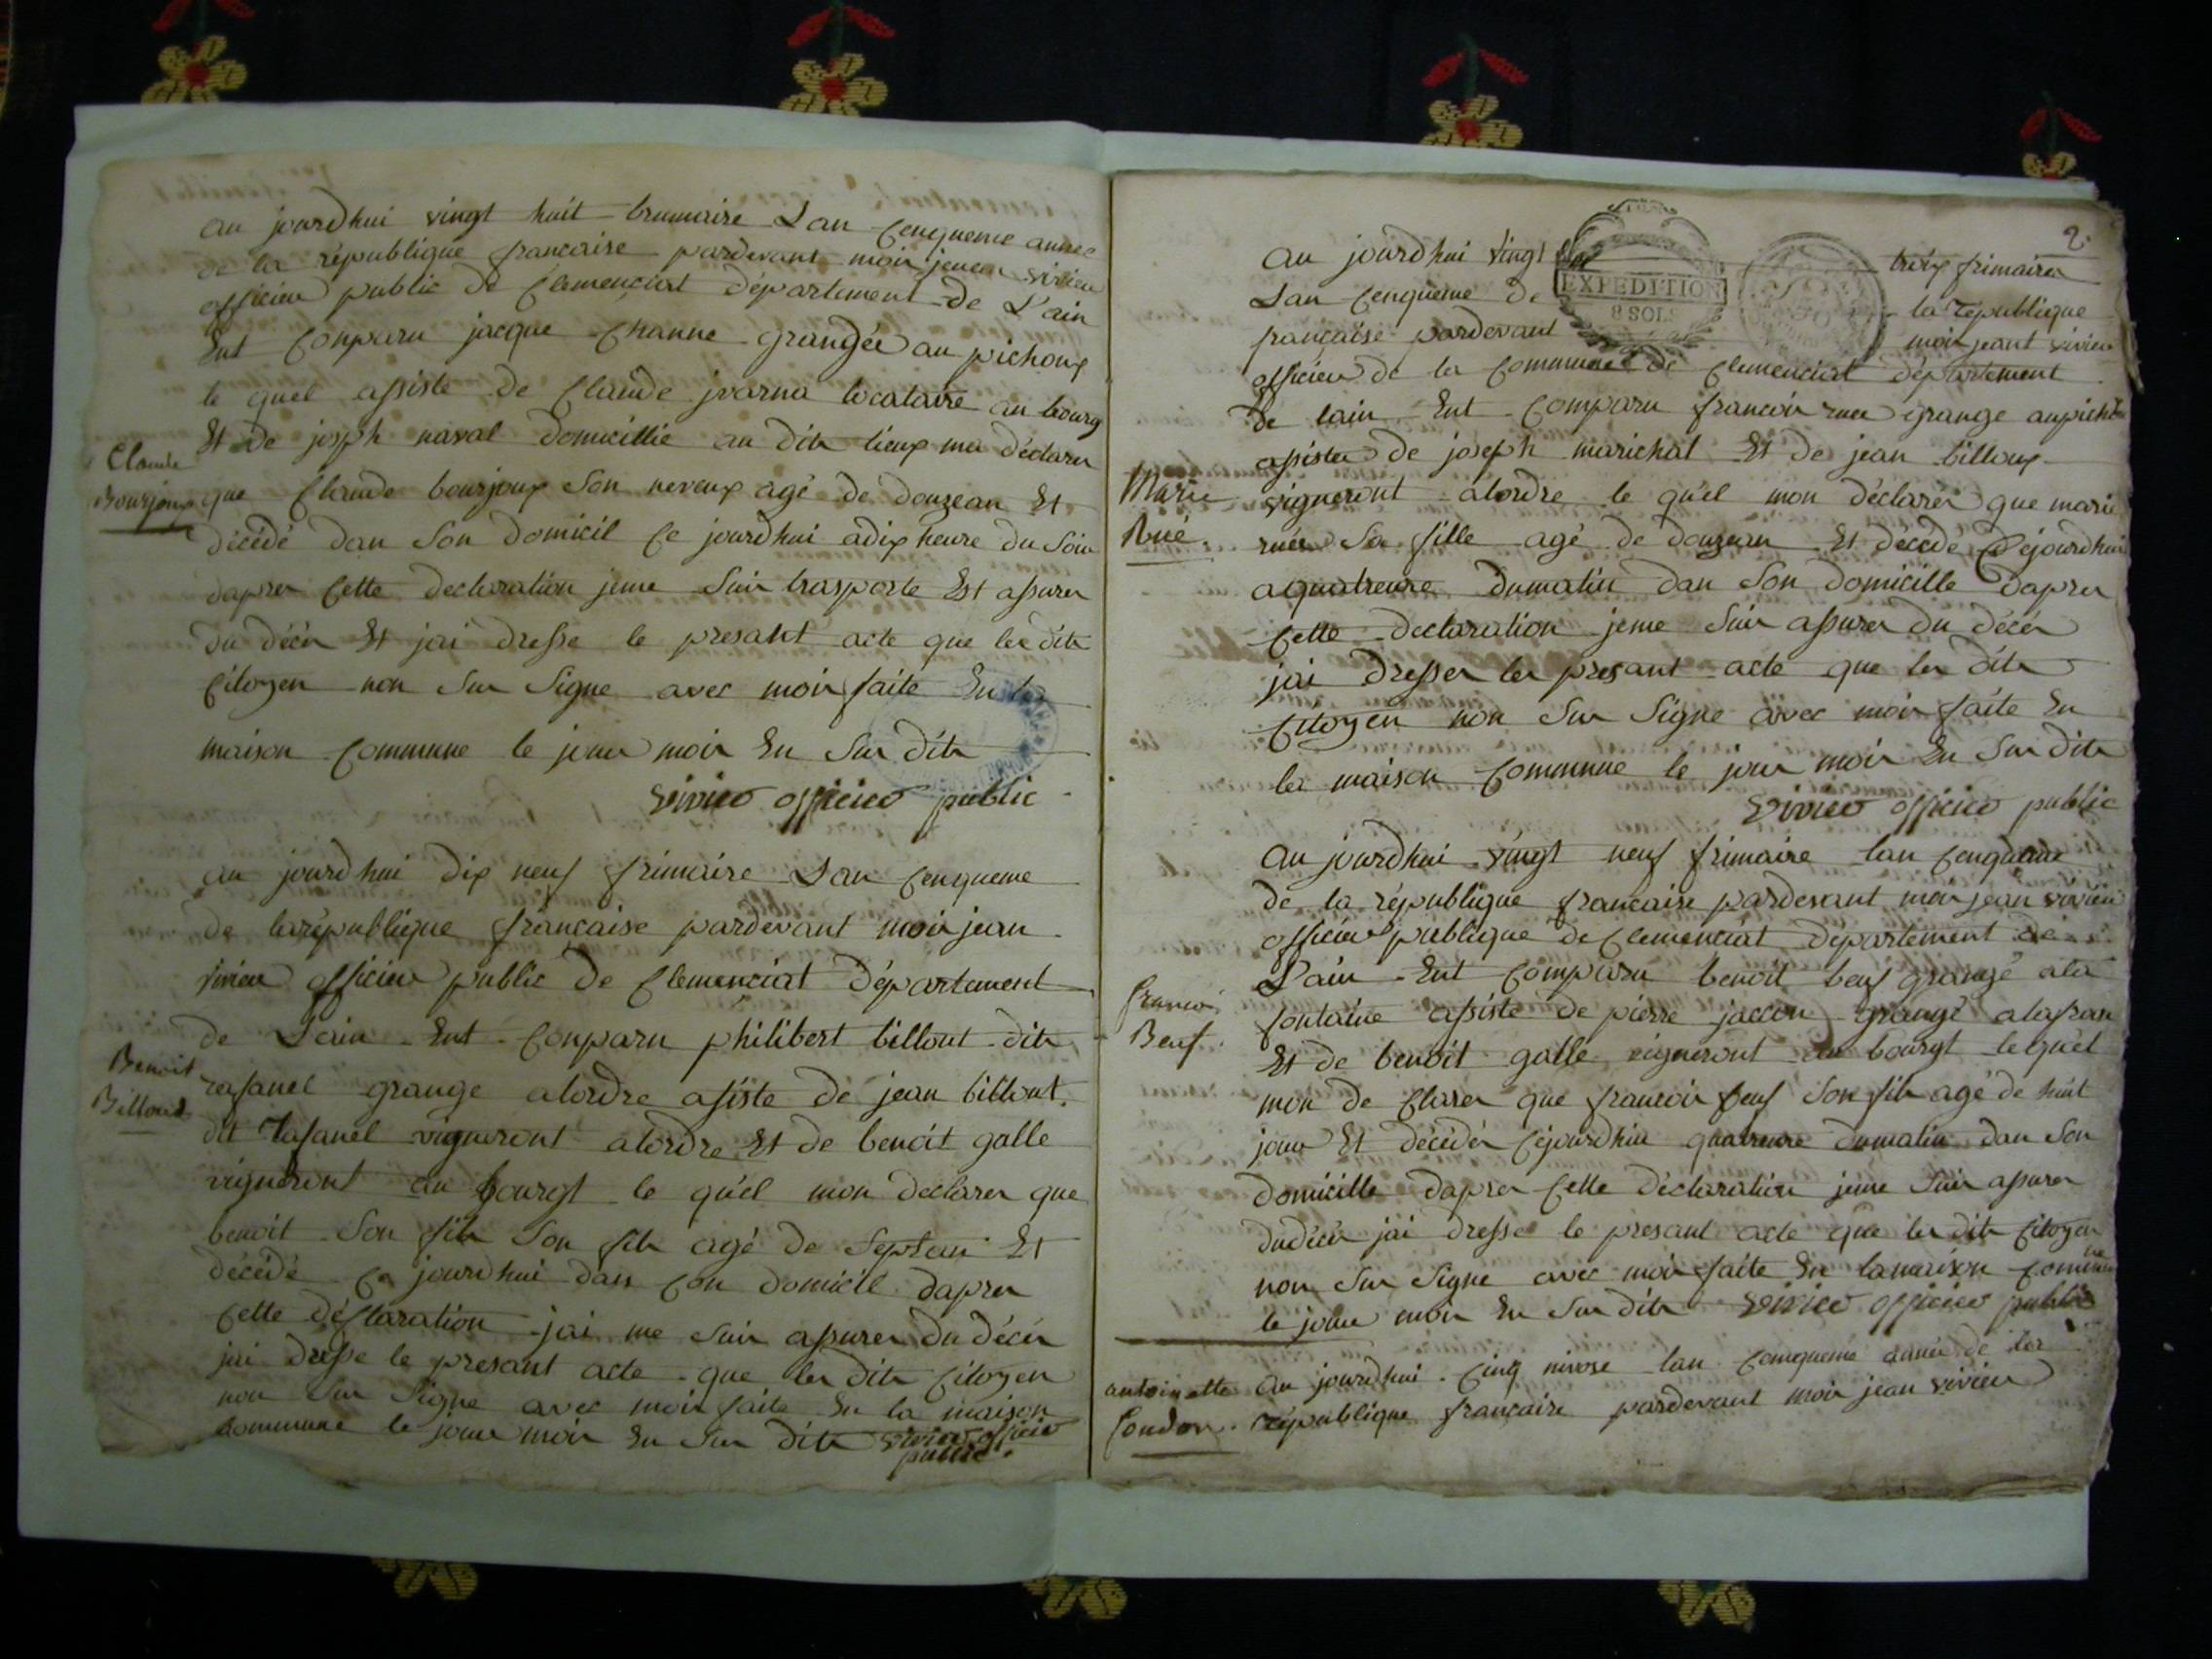 au jourdhui vingt huit brumaire Lan cenqueme annee
de la république francaise pardevant moi jean vivieu
officieu public de Clemenciat département de L'ain
Ent Conparu jacque Channe grangée au pichoux
le quel assiste de Claude locataire au bourg
Et de josph naval domicillie au dits lieux ma déclarer
Claude
Bourjoux
que Claude bourjoux Son neveux agé de douzean Et
décédé dan Son domicil Ce jourdhui adix heure du Soir
daprer Cette declaration jeme Suir trasporte Est assurer
du décer Et jai dresse le presant acte que les dits
Citoyen non Sur Signe avec moir faite En la
maison Commune le jour moir En Sur dits
vivieu officieu public
au jourdhui dix neuf frimaire Lan Cenqueme
de la république française pardevant moir jean
vivieu officieu public de Clemenciat département
de Lain Ent Conparu philibert billout dits
Benoit
Billoud
rafanel grange alordre assiste de jean billout
dit rafanel vigneront alordre Et de benoit galle
vigneront au bourgt le qu'el mon declarer que
benoit Son fils Son fils agé de Septan Et
décédé Ce jourdhui dans Son domicil daprer
Cette déClaration jai me Suir assurer du décer
jai dresse le presant acte que les dits Citoyen
non Sur Signe avec moir faite En la maison
Commune le jour moir En Sur dits vivieu officieu
public
2.
au jourdhui vingt trois frimaire
EXPEDITION
8 SOLS
Lan Cenqueme de la republique
française pardevant moir jeant vivieu
officieu de la Commune de Clemenciat département
de lain Ent Comparu francoir ruer grange
assister de joseph marichal Et de jean billoux
Marie
Rué.
vigneront alordre le qu'el mon déclarer que marie
ruer Sa fille agé de douzean Et décédé Cejourdhui
aquatreure dumatin dan Son domicille daprer
Cette declaration jeme Suir assurer du décer
jai dresser les presant acte que les dits
Citoyen non Sur Signe avec moir faite En
la maison Commune le jour moir En Sur dits
vivieu officieu public
au jourdhui vingt neuf frimaire lan Cenqueme
de la république francaise pardevant moir jean vivieu
officieu publique de Clemenciat département de
L'ain Ent Comparu benoit beuf grangé ala
Francoi
Beuf.
fontaine assiste de pierre jaccon grangé
Et de benoit galle vigneront au bourgt le qu'el
mon de Clarer que francoir beuf Son fils agé de huit
jour Et décédér Cejourdhui quatreure dumatin dan Son
domicille daprer Cette déclaration jeme Suir assurer
dudécer jai dresse le presant acte que les dits Citoyen
non Sur Signe avec moir faite En lamaison Commune
le jour moir En Sur dits vivieu officieu public
antoinette
Condon.
au jourdhui Cinq nivose lan Cenquemé année de la
république française pardevant moir jean vivieu